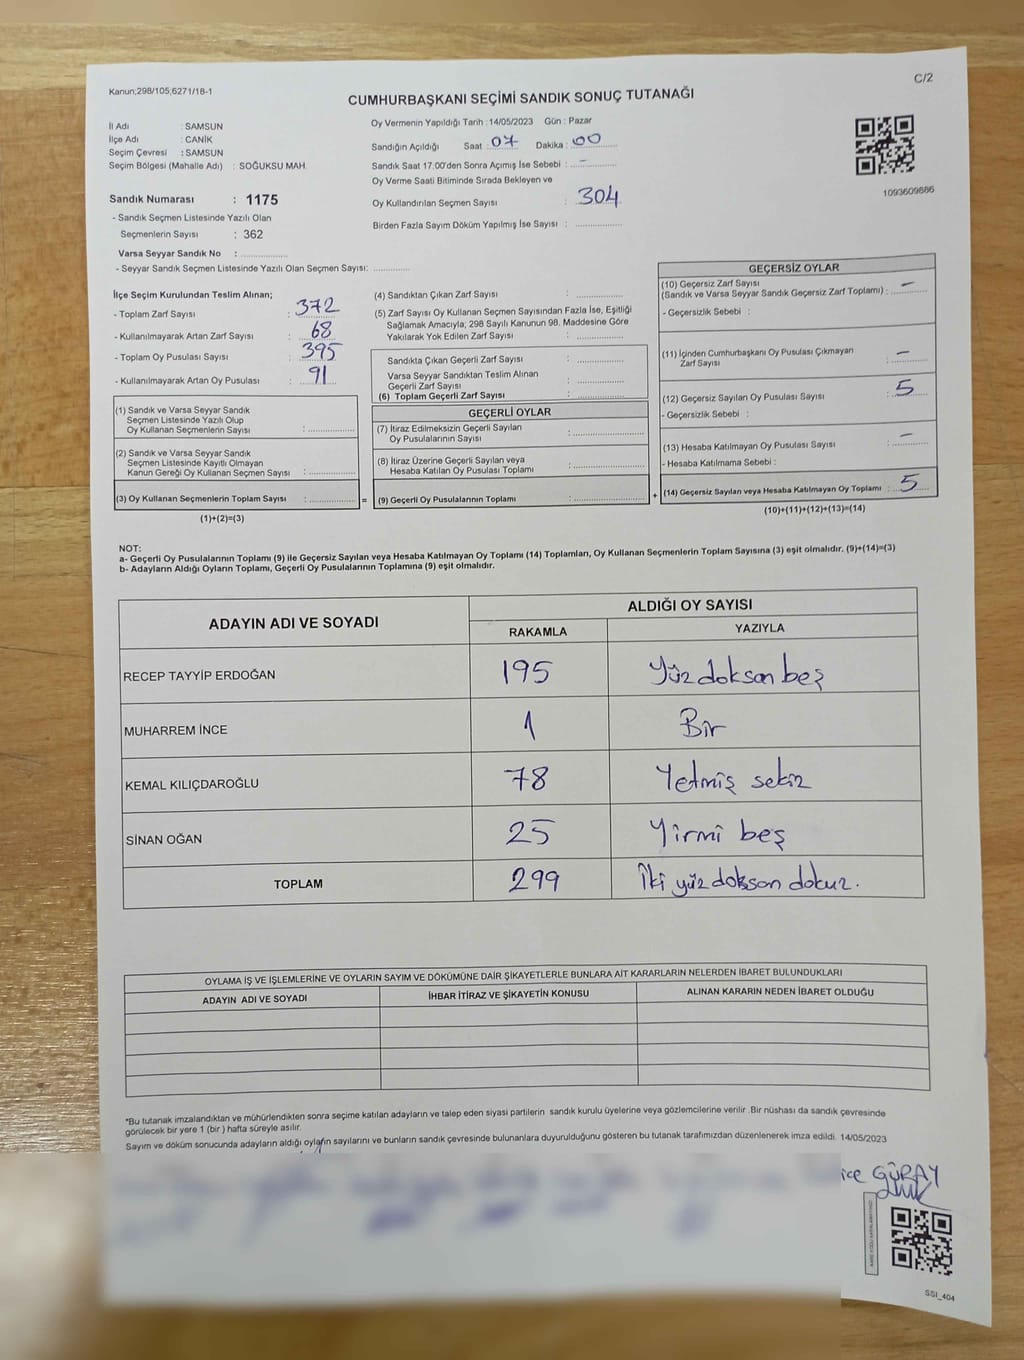 Kanun;298/105;6271/18-1
C/2
CUMHURBAŞKANI SEÇİMİ SANDIK SONUÇ TUTANAĞI
İl Adı : SAMSUN
İlçe Adı : CANİK
Seçim Çevresi : SAMSUN
Seçim Bölgesi (Mahalle Adı) : SOĞUKSU MAH.
Oy Vermenin Yapıldığı Tarih : 14/05/2023 Gün : Pazar
Sandığın Açıldığı Saat : 07 Dakika : 00
Sandık Saat 17.00'den Sonra Açımış İse Sebebi : -
Oy Verme Saati Bitiminde Sırada Bekleyen ve
Oy Kullandırılan Seçmen Sayısı : 304
Birden Fazla Sayım Döküm Yapılmış İse Sayısı : ..............
1093609886
Sandık Numarası : 1175
- Sandık Seçmen Listesinde Yazılı Olan
Seçmenlerin Sayısı : 362
Varsa Seyyar Sandık No : ..............
- Seyyar Sandık Seçmen Listesinde Yazılı Olan Seçmen Sayısı: ..............
İlçe Seçim Kurulundan Teslim Alınan;
- Toplam Zarf Sayısı : 372
- Kullanılmayarak Artan Zarf Sayısı : 68
- Toplam Oy Pusulası Sayısı : 395
- Kullanılmayarak Artan Oy Pusulası : 91
(1) Sandık ve Varsa Seyyar Sandık
Seçmen Listesinde Yazılı Olup
Oy Kullanan Seçmenlerin Sayısı : ..............
(2) Sandık ve Varsa Seyyar Sandık
Seçmen Listesinde Kayıtlı Olmayan
Kanun Gereği Oy Kullanan Seçmen Sayısı : ..............
(3) Oy Kullanan Seçmenlerin Toplam Sayısı : .............. =
(1)+(2)=(3)
(4) Sandıktan Çıkan Zarf Sayısı : ..............
(5) Zarf Sayısı Oy Kullanan Seçmen Sayısından Fazla İse, Eşitliği
Sağlamak Amacıyla; 298 Sayılı Kanunun 98. Maddesine Göre
Yakılarak Yok Edilen Zarf Sayısı : ..............
Sandıkta Çıkan Geçerli Zarf Sayısı : ..............
Varsa Seyyar Sandıktan Teslim Alınan
Geçerli Zarf Sayısı : ..............
(6) Toplam Geçerli Zarf Sayısı : ..............
GEÇERLİ OYLAR
(7) İtiraz Edilmeksizin Geçerli Sayılan
Oy Pusulalarının Sayısı : ..............
(8) İtiraz Üzerine Geçerli Sayılan veya
Hesaba Katılan Oy Pusulası Toplamı : ..............
(9) Geçerli Oy Pusulalarının Toplamı : .............. +
GEÇERSİZ OYLAR
(10) Geçersiz Zarf Sayısı
(Sandık ve Varsa Seyyar Sandık Geçersiz Zarf Toplamı) : -
- Geçersizlik Sebebi :
(11) İçinden Cumhurbaşkanı Oy Pusulası Çıkmayan
Zarf Sayısı : -
(12) Geçersiz Sayılan Oy Pusulası Sayısı : 5
- Geçersizlik Sebebi :
(13) Hesaba Katılmayan Oy Pusulası Sayısı : -
- Hesaba Katılmama Sebebi :
(14) Geçersiz Sayılan veya Hesaba Katılmayan Oy Toplamı : 5
(10)+(11)+(12)+(13)=(14)
NOT:
a- Geçerli Oy Pusulalarının Toplamı (9) ile Geçersiz Sayılan veya Hesaba Katılmayan Oy Toplamı (14) Toplamları, Oy Kullanan Seçmenlerin Toplam Sayısına (3) eşit olmalıdır. (9)+(14)=(3)
b- Adayların Aldığı Oyların Toplamı, Geçerli Oy Pusulalarının Toplamına (9) eşit olmalıdır.
ADAYIN ADI VE SOYADI ALDIĞI OY SAYISI
RAKAMLA YAZIYLA
RECEP TAYYİP ERDOĞAN 195 Yüz doksan beş
MUHARREM İNCE 1 Bir
KEMAL KILIÇDAROĞLU 78 Yetmiş sekiz
SİNAN OĞAN 25 Yirmi beş
TOPLAM 299 İki yüz doksan dokuz.
OYLAMA İŞ VE İŞLEMLERİNE VE OYLARIN SAYIM VE DÖKÜMÜNE DAİR ŞİKAYETLERLE BUNLARA AİT KARARLARIN NELERDEN İBARET BULUNDUKLARI
ADAYIN ADI VE SOYADI İHBAR İTİRAZ VE ŞİKAYETİN KONUSU ALINAN KARARIN NEDEN İBARET OLDUĞU
*Bu tutanak imzalandıktan ve mühürlendikten sonra seçime katılan adayların ve talep eden siyasi partilerin sandık kurulu üyelerine veya gözlemcilerine verilir .Bir nüshası da sandık çevresinde
görülecek bir yere 1 (bir ) hafta süreyle asılır.
Sayım ve döküm sonucunda adayların aldığı oyların sayılarını ve bunların sandık çevresinde bulunanlara duyurulduğunu gösteren bu tutanak tarafımızdan düzenlenerek imza edildi. 14/05/2023
ice GÜRAY
SSI_404